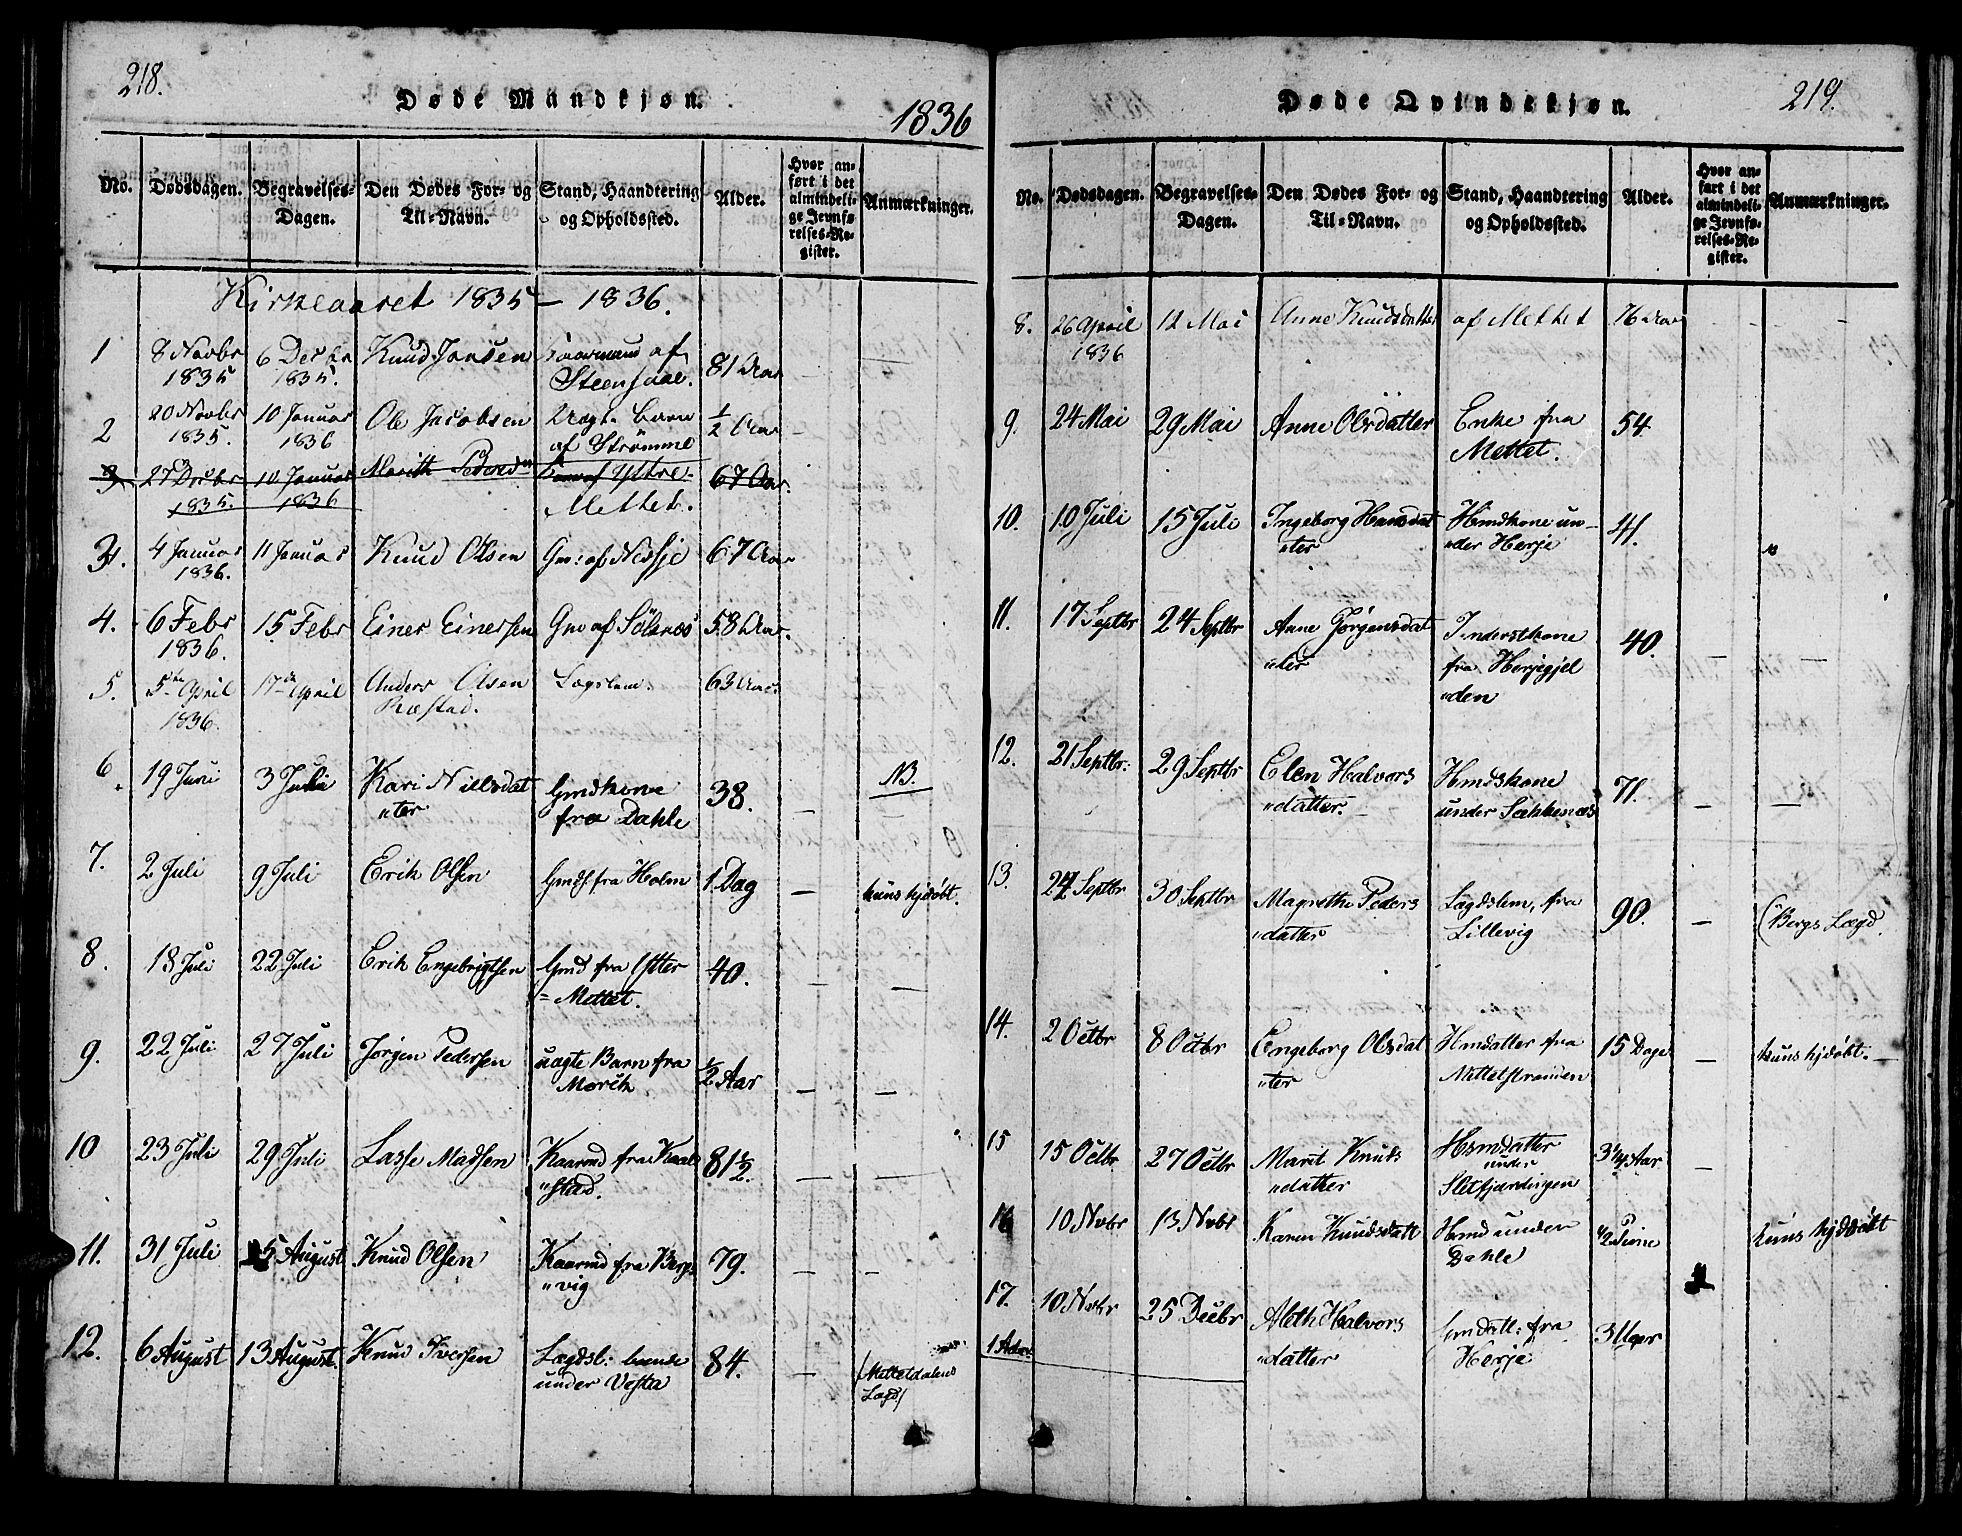 218.
Døde Mandkjøn.
1836
No. Dødsdagen. Begravelses-Dagen. Den Dødes For- og Til-Navn. Stand, Haandtering og Opholdssted. Alder. Hvor anført i det almindelige Jevnførelses-Register. Anmærkninger.
Kirkeaaret 1835 - 1836.
1 8 Novbr 1835 6 Decbr 1835. Knud Jonsen af 81 Aar
2 20 Novbr 1835. 10 Januar 1836 Ole Jacobsen Uægt. Barn af Strömme 1/2 Aar
3 27 Decbr 1835. 10 Januar 1836 Marith af Ytre-Mettet. 67 Aar.
3. 4 Januar 1836. 11 Januar Knud Olsen Gm: af Nesje 67 Aar
4. 6 Febr 1836. 15 Febr Einer Einersen Gm af Sölsnæs 58 Aar.
5. 5te April 1836. 17de April Anders Olsen Ræstad. Lægslem. 63 Aar.
6. 19 Juni 3 Juli Kari Nilsdat„ter Gmdkone fra Dahle 38. — NB.
7. 2 Juli 9 Juli Erik Olsen Gmds. fra Holm 1 Dag — kuns hjdøbt.
8. 18 Juli 22 Juli Erik Engebrigtsen Gmd fra Ytter=Mettet. 40. — —
9. 22 Juli 27 Juli Jørgen Pedersen uægte Barn fra Morck 1/2 Aar — —
10 23 Juli 29 Juli Lasse Madsen Kaarmd fra „stad. 81 1/2. — —
11. 31 Juli 5 August Knud Olsen Kaarmd fra Berg„vig 79. — —
12. 6 August 13 August Knud Iversen Lægdsl: under 84. — (Mettetdalens Lægd)
219.
Døde Qvindekjøn.
No. Dødsdagen. Begravelses-Dagen. Den Dødes For- og Til-Navn. Stand, Haandtering og Opholdssted. Alder. Hvor anført i det almindelige Jevnførelses-Register. Anmærkninger.
8. 26 April 1836 12 Mai Anne Knudsdatter af Mettet 76 Aar
9. 24 Mai 29 Mai Anne Olsdatter Enke fra Mettet. 54
10. 10 Juli 15 Juli Ingeborg Hansdat„ter Hmdkone un-„der Herje 41.
11. 17 Septbr 24 Septbr Anne Jørgensdat„ter Inderstkone fra Herjegjel„den 40. — —
12. 21 Septbr: 29 Septbr Elen Halvors„datter. Hmdskone under Sækkenæs 71. — —
13. 24 Septbr 30 Septbr Magrethe Peders„datter Lægdslem, fra Lillevig 90. — (Bergs Lægd.
14. 2 Octbr 8 Octbr Engeborg Olsdat„ter Hmdatter fra Mettetstranden 15 Dage — kuns hjdøbt. —
15 15 Octbr 27 Octbr Marit Knuds„datter Hsmdatter under Sletfjærdingen 3 1/4 Aar —
16 10 Nvbr 13 Nvbr Karen Knudsdatt Hmd under Dahle 1/2 Time kuns hjddöbt
17. 10 Nvbr 25 Decbr Meth Halvors„datter Gmdatt: fra Herje 3 Uger